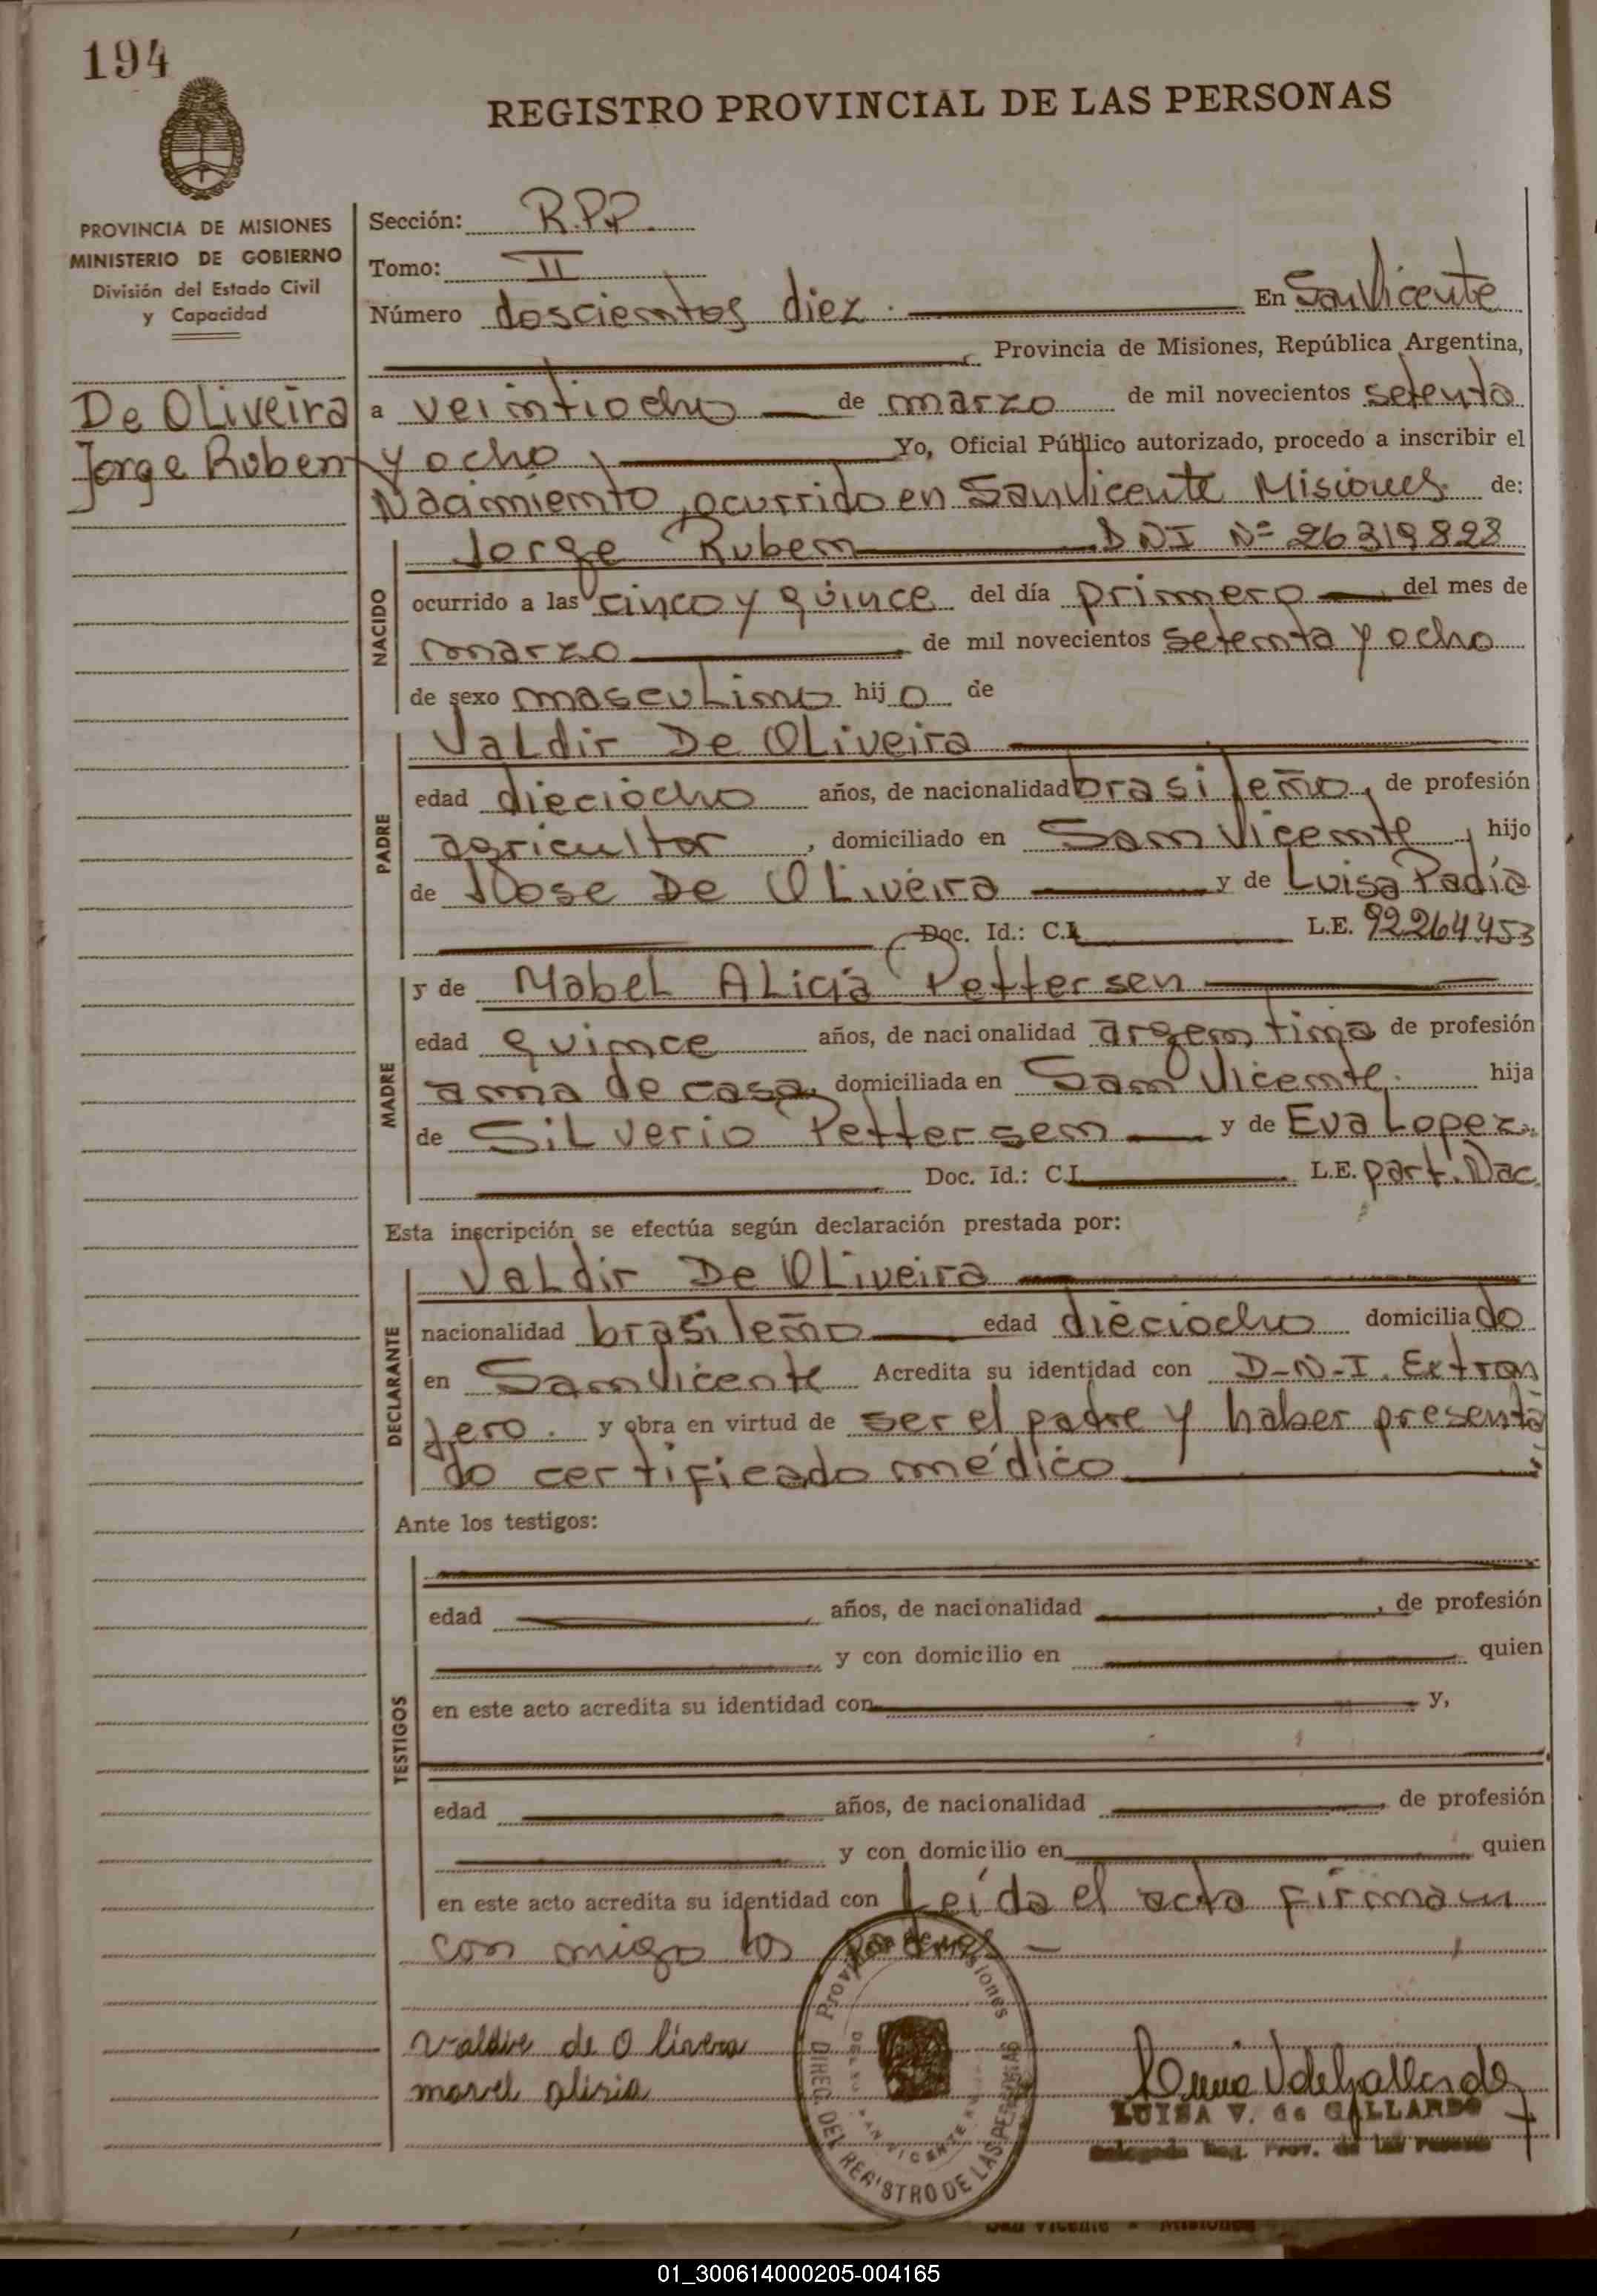 194
REGISTRO PROVINCIAL DE LAS PERSONAS
PROVINCIA DE MISIONES
MINISTERIO DE GOBIERNO
División del Estado Civil
y Capacidad
De Oliveira
Jorge Ruben
Sección: R.P.P.
Tomo: II
Número doscientos diez. En San Vicente
Provincia de Misiones, República Argentina,
a veintiocho de marzo de mil novecientos setenta
y ocho, Yo, Oficial Público autorizado, procedo a inscribir el
Nacimiento, ocurrido en San Vicente Misiones de:
NACIDO
Jorge Ruben DNI Nº 26319823
ocurrido a las cinco y quince del día primero del mes de
marzo de mil novecientos setenta y ocho
de sexo masculino hijo de
PADRE
Valdir De Oliveira
edad dieciocho años, de nacionalidad brasileño, de profesión
agricultor, domiciliado en San Vicente, hijo
de Jose De Oliveira y de Luisa Padia
Doc. Id.: C.I. L.E. 92264453
MADRE
y de Mabel Alicia Pettersen
edad quince años, de nacionalidad argentina de profesión
ama de casa, domiciliada en San Vicente. hija
de Silverio Pettersen y de Eva Lopez.
Doc. Id.: C.I. L.E. part. Nac
Esta inscripción se efectúa según declaración prestada por:
DECLARANTE
Valdir De Oliveira
nacionalidad brasileño edad dieciocho domiciliado
en San Vicente Acredita su identidad con D-N-I. Extran
jero. y obra en virtud de ser el padre y haber presenta
do certificado médico
Ante los testigos:
TESTIGOS
edad años, de nacionalidad, de profesión
y con domicilio en quien
en este acto acredita su identidad con y,
edad años, de nacionalidad de profesión
y con domicilio en quien
en este acto acredita su identidad con Leida el acta firman
con migo los
Provincia de Misiones
DIREC. DEL REGISTRO DE LAS PERSONAS
SAN VICENTE
valdir de Olivera
marvel alisia
LUISA V. de GALLARDO
Delegada Reg. Prov. de las Personas
San Vicente - Misiones
01_300614000205-004165